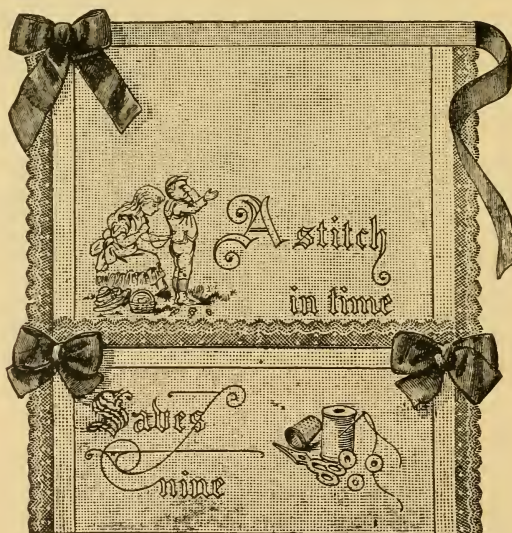 A stitch
in time
Saves
nine